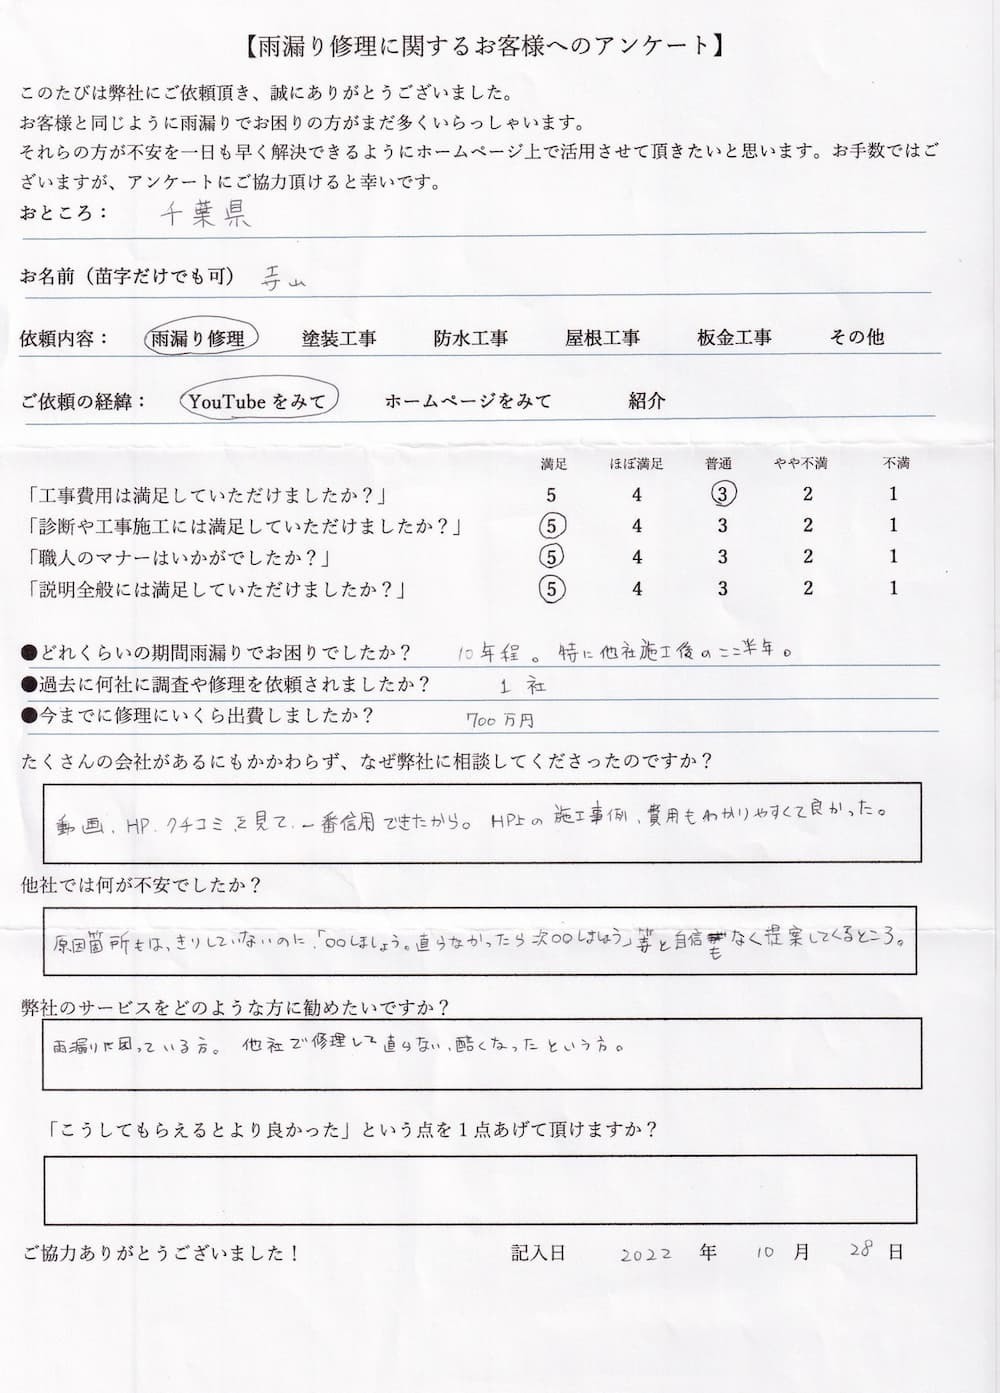 【雨漏り修理に関するお客様へのアンケート】
このたびは弊社にご依頼頂き、誠にありがとうございました。
お客様と同じように雨漏りでお困りの方がまだ多くいらっしゃいます。
それらの方が不安を一日も早く解決できるようにホームページ上で活用させて頂きたいと思います。お手数ではご
ざいますが、アンケートにご協力頂けると幸いです。
おところ： 千葉県
お名前（苗字だけでも可） 寺山
依頼内容： 雨漏り修理 塗装工事 防水工事 屋根工事 板金工事 その他
ご依頼の経緯： YouTubeをみて ホームページをみて 紹介
満足 ほぼ満足 普通 やや不満 不満
「工事費用は満足していただけましたか？」 5 4 3 2 1
「診断や工事施工には満足していただけましたか？」 5 4 3 2 1
「職人のマナーはいかがでしたか？」 5 4 3 2 1
「説明全般には満足していただけましたか？」 5 4 3 2 1
●どれくらいの期間雨漏りでお困りでしたか？ 10年程。特に他社施工後のここ半年。
●過去に何社に調査や修理を依頼されましたか？ 1社
●今までに修理にいくら出費しましたか？ 700万円
たくさんの会社があるにもかかわらず、なぜ弊社に相談してくださったのですか？
動画、HP、クチコミを見て、一番信用できたから。HP上の施工事例、費用もわかりやすくて良かった。
他社では何が不安でしたか？
原因箇所もはっきりしていないのに、「○○しましょう。直らなかったら次○○しましょう」等と自信もなく提案してくるところ。
弊社のサービスをどのような方に勧めたいですか？
雨漏りに困っている方。他社で修理して直らない、酷くなったという方。
「こうしてもらえるとより良かった」という点を１点あげて頂けますか？
ご協力ありがとうございました！ 記入日 2022 年 10 月 28 日